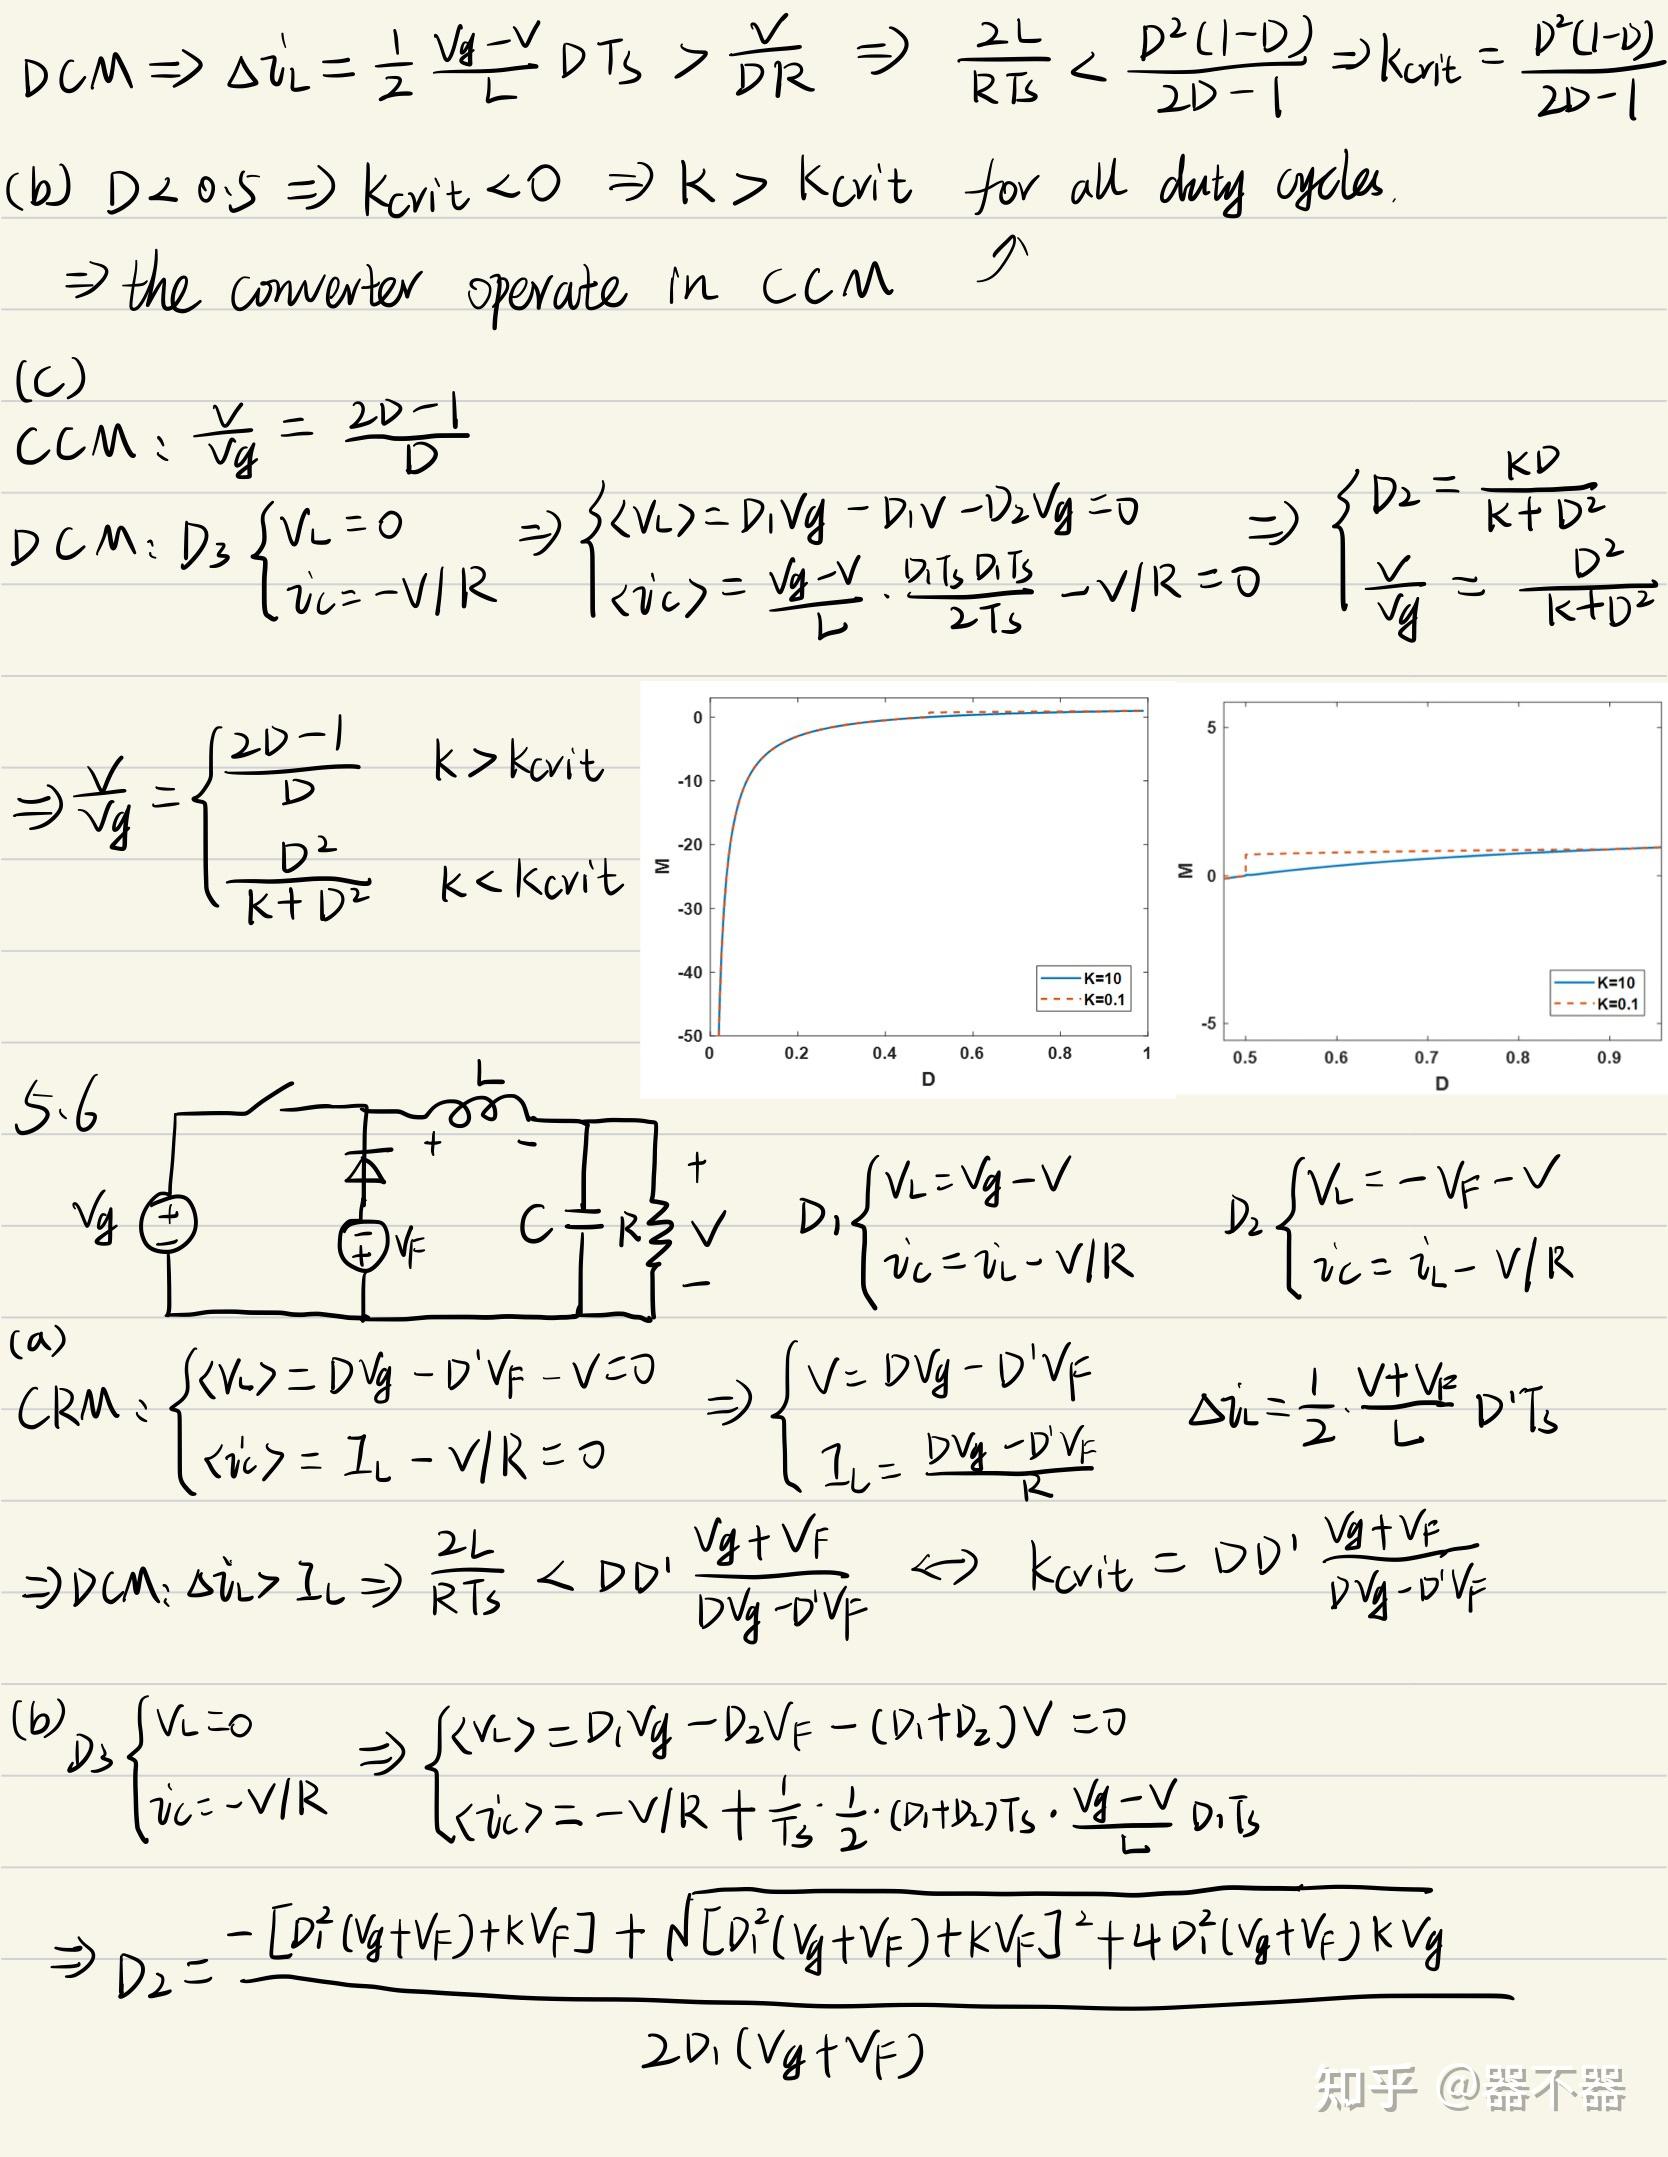 DCM ⇒ Δi_L = 1/2 (Vg-V)/L DTs > V/(DR) ⇒ 2L/(RTs) < D²(1-D)/(2D-1) ⇒ kcrit = D²(1-D)/(2D-1)
(b) D<0.5 ⇒ kcrit<0 ⇒ K > Kcrit for all duty cycles.
⇒ the converter operate in CCM ↗
(c)
CCM: V/Vg = (2D-1)/D
DCM: D₃ { V_L = 0 ; i_c = -V/R ⇒ { <V_L> = D₁Vg - D₁V - D₂Vg = 0 ; <i_c> = (Vg-V)/L · (D₁Ts D₁Ts)/(2Ts) - V/R = 0 ⇒ { D₂ = KD/(K+D²) ; V/Vg = D²/(K+D²)
⇒ V/Vg = { (2D-1)/D k > kcrit ; D²/(K+D²) k < kcrit
0
-10
-20
-30
-40
-50
M
0 0.2 0.4 0.6 0.8 1
D
K=10
K=0.1
5
0
-5
M
0.5 0.6 0.7 0.8 0.9
D
K=10
K=0.1
5.6
L
+ -
Vg + - - + V_F C R + V -
D₁ { V_L = Vg - V ; i_c = i_L - V/R
D₂ { V_L = -V_F - V ; i_c = i_L - V/R
(a)
CRM: { <V_L> = DVg - D'V_F - V = 0 ; <i_c> = I_L - V/R = 0 ⇒ { V = DVg - D'V_F ; I_L = (DVg - D'V_F)/R Δi_L = 1/2 · (V+V_F)/L D'Ts
⇒ DCM: Δi_L > I_L ⇒ 2L/(RTs) < DD' (Vg+V_F)/(DVg-D'V_F) ↔ kcrit = DD' (Vg+V_F)/(DVg-D'V_F)
(b) D₃ { V_L = 0 ; i_c = -V/R ⇒ { <V_L> = D₁Vg - D₂V_F - (D₁+D₂)V = 0 ; <i_c> = -V/R + 1/Ts · 1/2 · (D₁+D₂)Ts · (Vg-V)/L D₁Ts
⇒ D₂ = (-[D₁²(Vg+V_F)+KV_F] + √([D₁²(Vg+V_F)+KV_F]² + 4D₁²(Vg+V_F)KVg)) / (2D₁(Vg+V_F))
知乎 @器不器